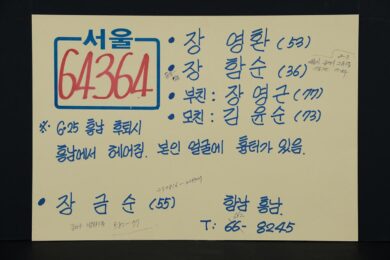 서울
64364
• 장 영환 (53)
• 장 함순 (36)
• 부친 : 장 영근 (77)
• 모친 : 김 윤순 (73)
※ 6·25 흥남 후퇴시
흥남에서 헤어짐. 본인 얼굴에 흉터가 있음.
• 장 금순 (55) 함남 흥남.
T : 66-8245